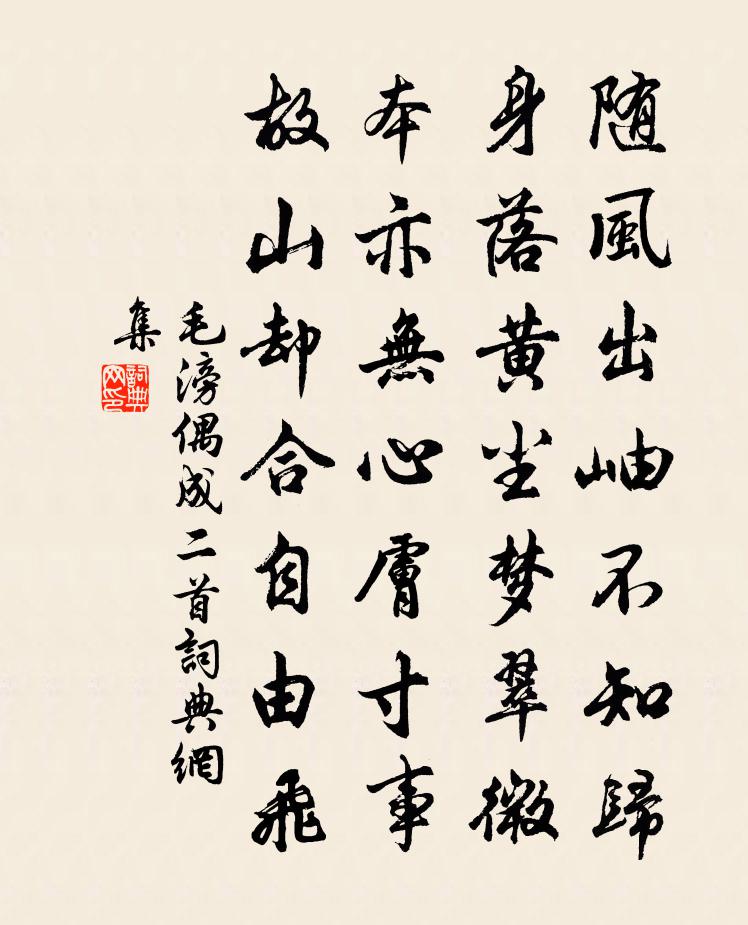 随風出岫不知歸
身落黃尘梦翠微
本亦無心膚寸事
故山却合自由飛
毛滂偶成二首詞典網
集
詞典
网印